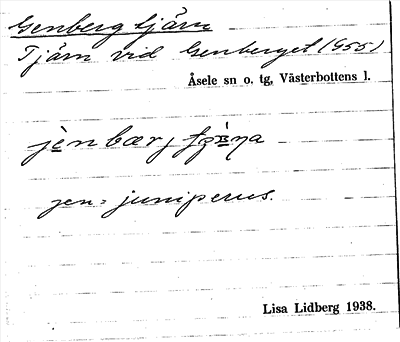 Genbergtjärn
Tjärn vid Genberget (G55)
Åsele sn o. tg, Västerbottens l.
jen = juniperus.
Lisa Lidberg 1938.